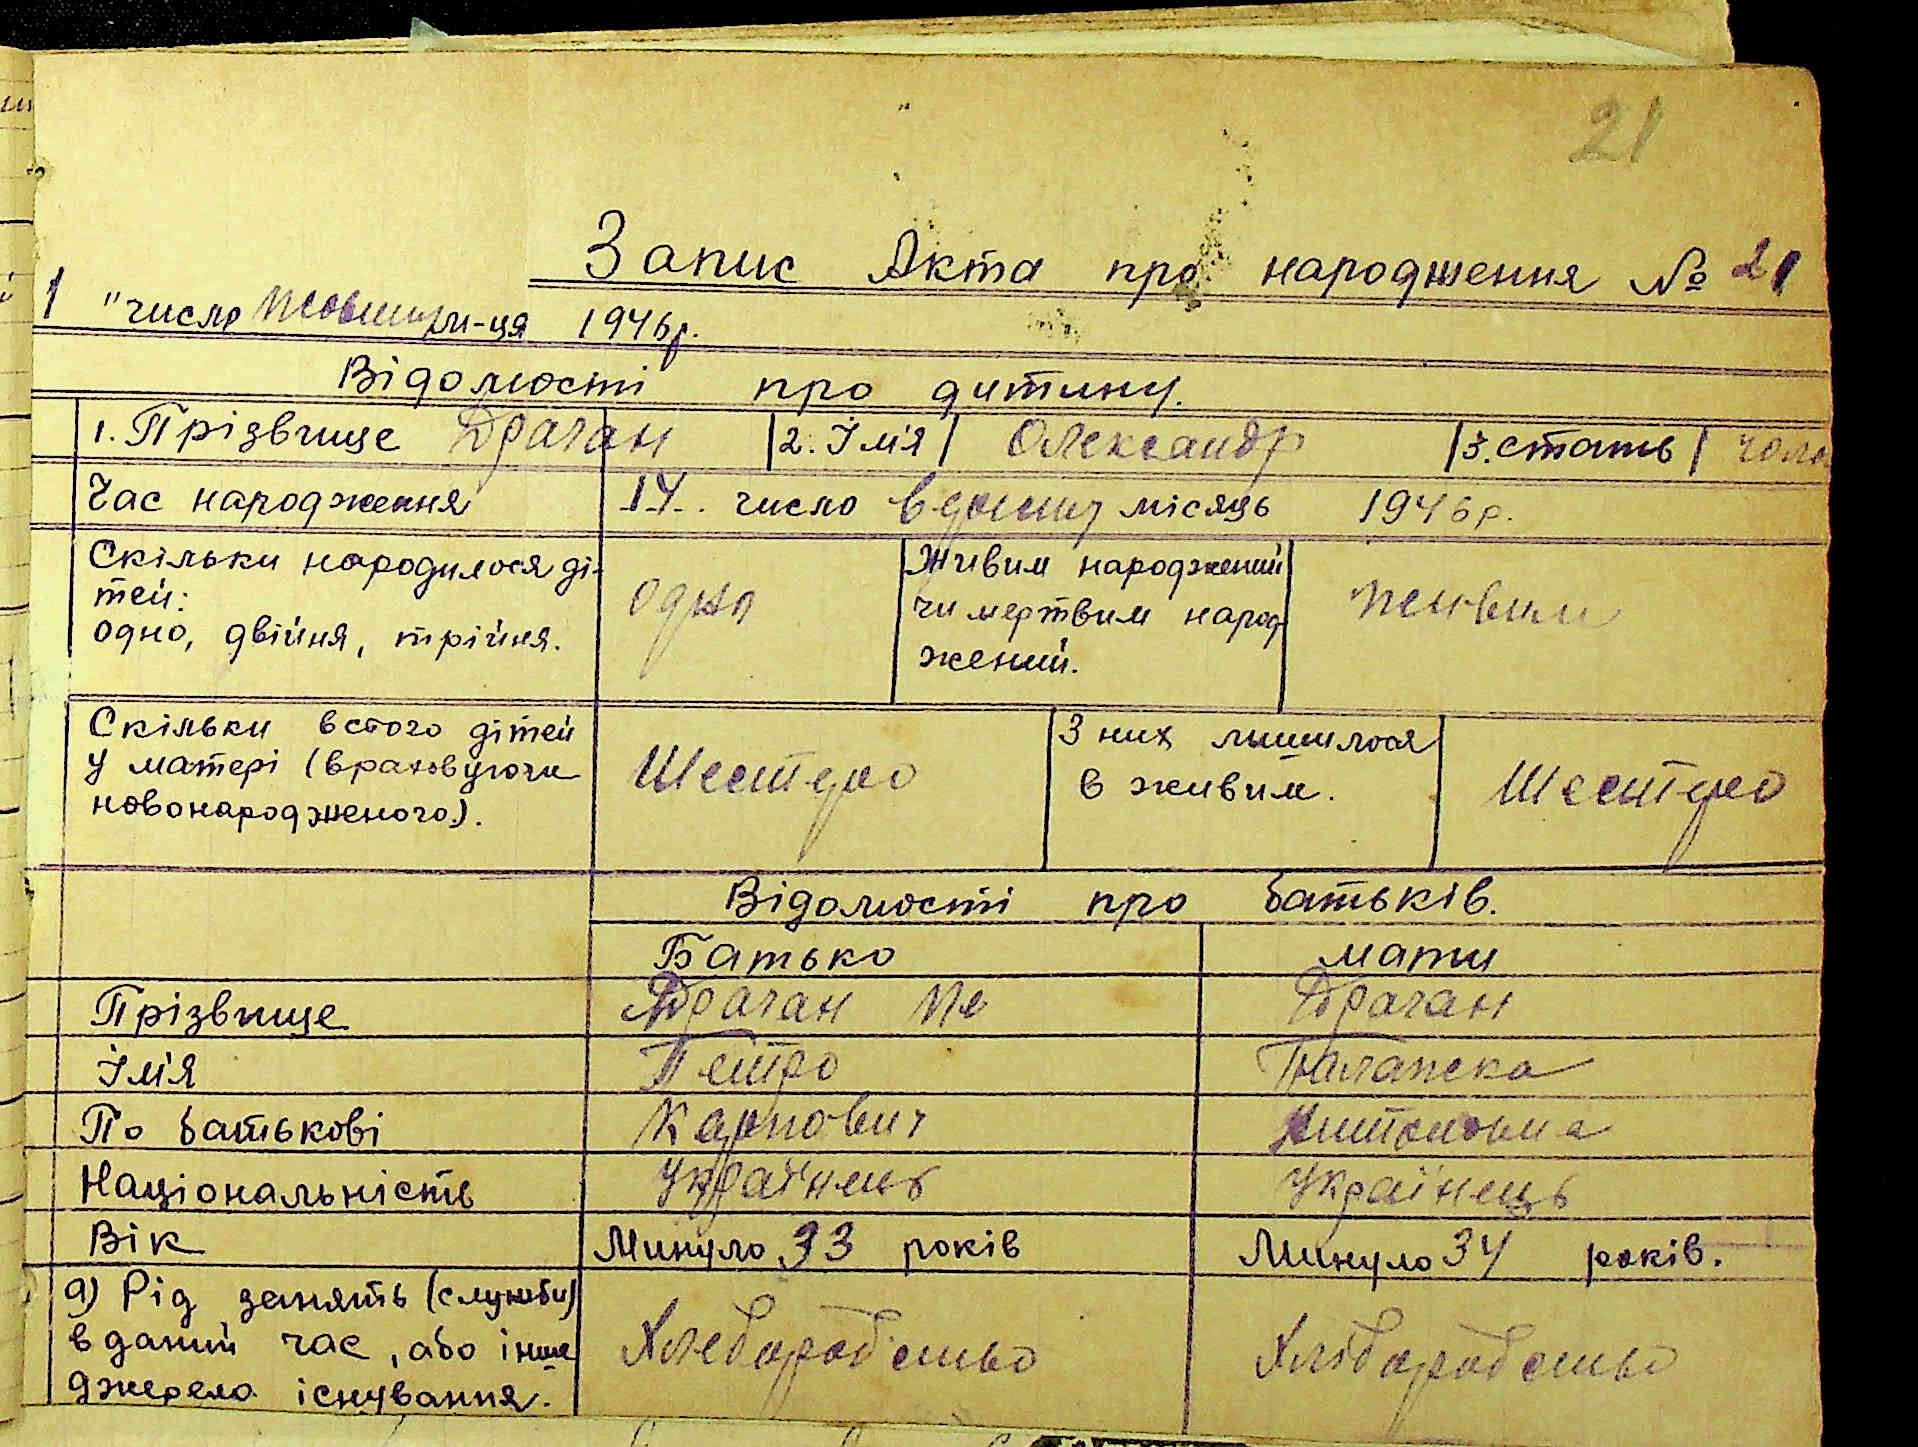 21
Запис Акта про народження № 21
1 "число жовтн м-ця 1946р.
Відомості про дитину.
1. Прізвище Драган 2. Ім'я Олександр 3. стать чоло
Час народження 14. число в дому місяць 1946р.
Скільки народилося ді-
тей:
одно, двійня, трійня.
одно
Живим народжений
чи мертвим народ
жений.
живим
Скільки всього дітей
у матері (враховуючи
новонародженого).
Шестеро
З них лишилося
в живим.
Шестеро
Відомості про батьків.
Батько мати
Прізвище Драган Пе Драган
Ім'я Петро Палажка
По батькові Карпович
Національність Українець Українець
Вік Минуло 33 років Минуло 34 років.
а) Рід занять (служби)
в даний час, або інше
джерело існування.
Хлеборобство Хліборобство